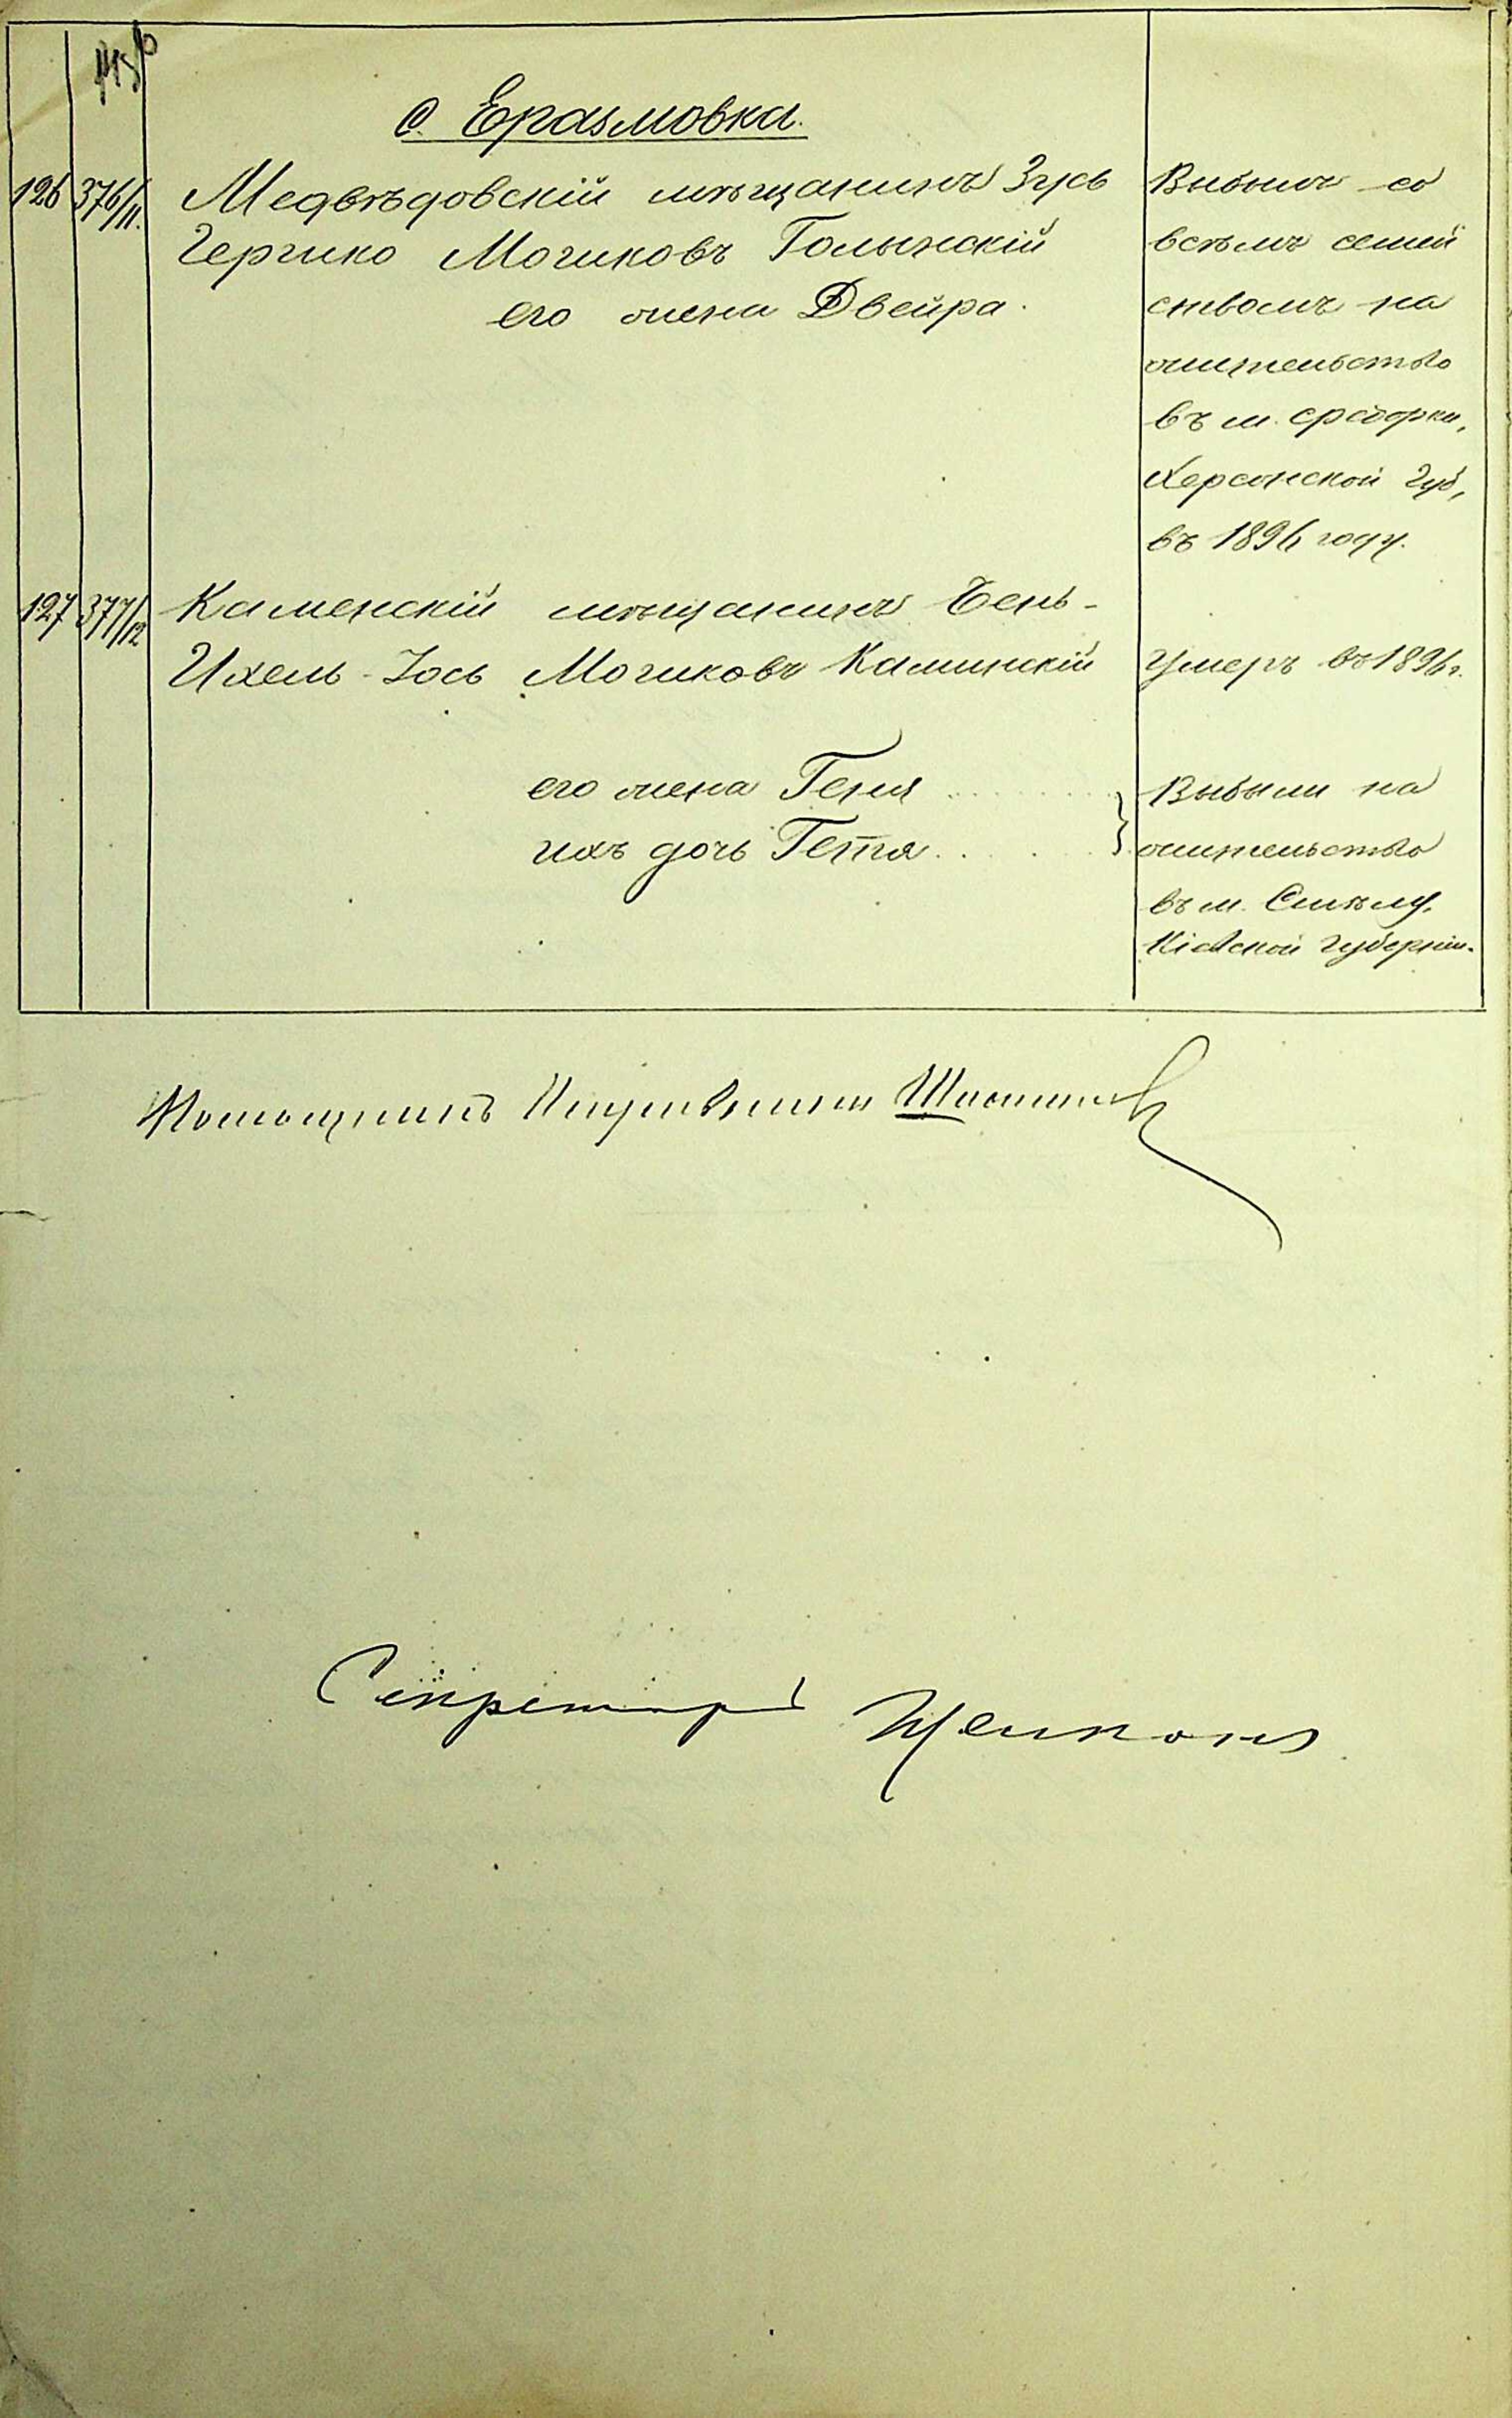 с. Еразмовка.
126 376/11. Медвѣдовскій мѣщанинъ Зусь
Гершко Мошковъ Голынскій
его жена Двейра.
Выбылъ со
всѣмъ семей
ствомъ на
жительство
въ м.
Херсонской губ,
въ 1896 году.
127 377/12 Каменскій мѣщанинъ Бень-
Ихель-Іось Мошковъ Каминскій
Умеръ въ 1896 г.
его жена Геня
ихъ дочь Гетя
Выбыли на
жительство
въ м. Смѣлу,
Кіевской губерніи.
Помощникъ Исправника
Секретарь